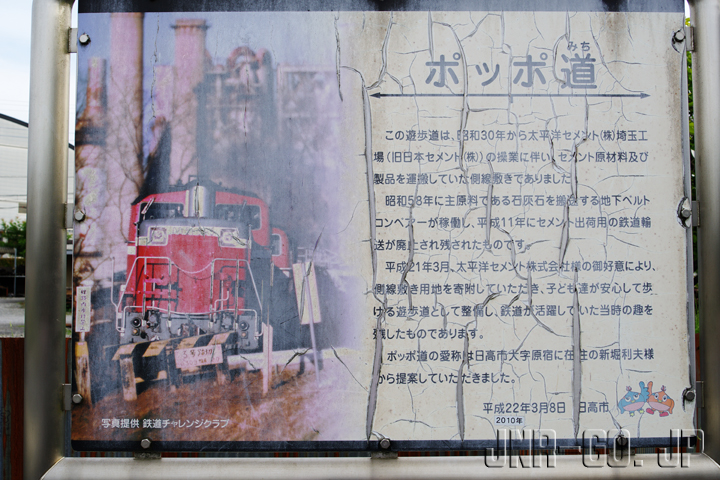 みち
ポッポ道
この遊歩道は、昭和30年から太平洋セメント(株)埼玉工
場(旧日本セメント(株))の操業に伴い、セメント原材料及び
製品を運搬していた側線敷きでありました。
昭和58年に主原料である石灰石を搬送する地下ベルト
コンベアーが稼働し、平成11年にセメント出荷用の鉄道輸
送が廃止され残されたものです。
平成21年3月、太平洋セメント株式会社様の御好意により、
側線敷き用地を寄附していただき、子ども達が安心して歩
ける遊歩道として整備し、鉄道が活躍していた当時の趣を
残したものであります。
ポッポ道の愛称は日高市大字原宿に在住の新堀利夫様
から提案していただきました。
平成22年3月8日 日高市
2010年
写真提供 鉄道チャレンジクラブ
JNR CO. JP